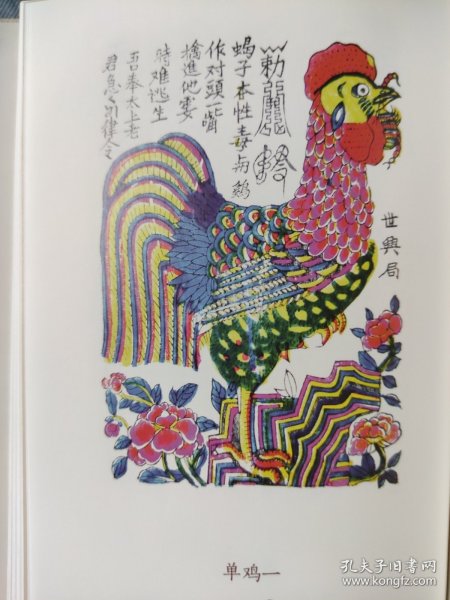 蝎子本性毒与鷄
作对頭一嘴
擒進他要
時难逃生
吾奉太上老
君急々如律令
世興局
单鸡一
孔夫子旧书网
www.kongfz.com